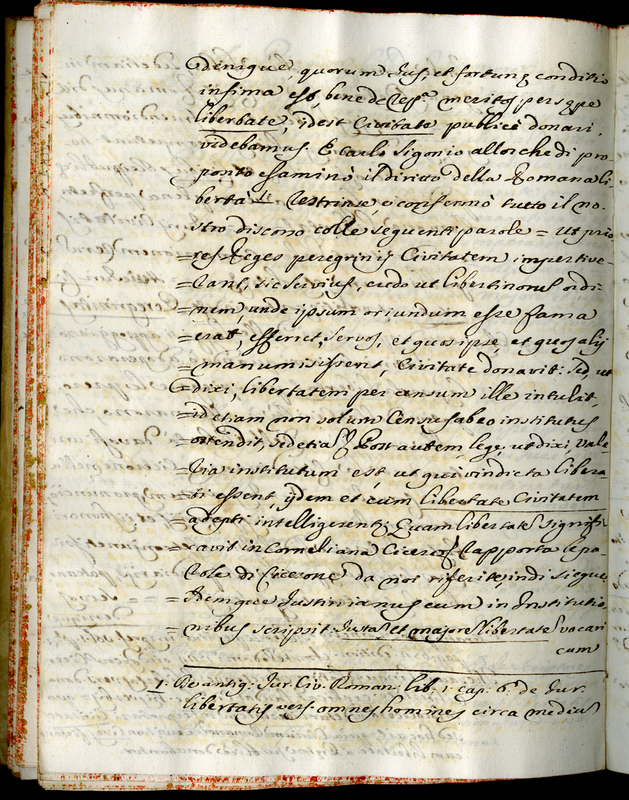 =denique, quorum Jus, et fortunę conditio
infima est, bene de Repp.ª meritos persępe
libertate, idest Civitate publicè donari
videbamus. E Carlo Sigonio allorche di pro
ponto esaminò il diritto della Romana li
bertà 1 restrinse, e confermò tutto il no-
stro discorso colle seguenti parole = Ut prio
=res Reges peregrinis Civitatem impertive-
=rant, sic Servius, credo ut libertinorum ordi-
=nem unde ipsum oriundum esse fama
=erat, efferret, servos, et quos ipse, et quos alij
=manumisissent, Civitate donavit: sed ut
=dixi, libertatem per censum ille intulit,
=id etiam non solum Census ab eo institutus
=ostendit, sed etia Post autem lege, ut dixi, Vale
=ria institutum est, ut qui vindicta libera-
=ti essent, ijdem et cum libertate Civitatem
=adepti intelligerent; Quam libertatem signifi
=cavit in Corneliana Cicero Rapporta le pa-
role di Cicerone da noi riferite, indi siegue
=Idemque Justinianus cum in Institutio
=nibus scripsit Justa et majore libertate vocari
cum
1. De antiq: Jur. Civ. Roman. lib. 1. cap. 6.º de Jur.
libertatis vers. omnes homines circa medium